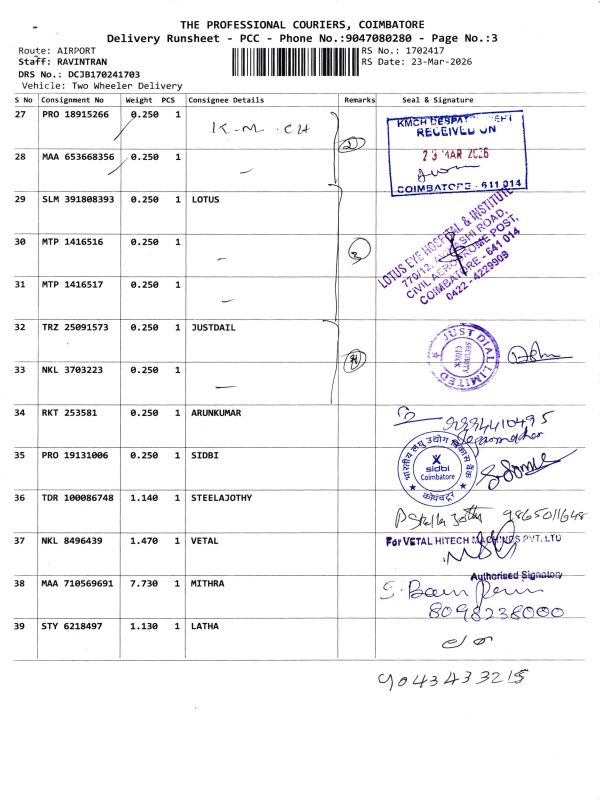 THE PROFESSIONAL COURIERS, COIMBATORE
Delivery Runsheet - PCC - Phone No.:9047080280 - Page No.:3
Route: AIRPORT RS No.: 1702417
Staff: RAVINTRAN RS Date: 23-Mar-2026
DRS No.: DCJB170241703
Vehicle: Two Wheeler Delivery
S No Consignment No Weight PCS Consignee Details Remarks Seal & Signature
27 PRO 18915266 0.250 1 K.M.CH
KMCH DESPAT
RECEIVED ON
23 MAR 2026
COIMBATORE - 641 014
28 MAA 653668356 0.250 1 — 2
29 SLM 391808393 0.250 1 LOTUS
LOTUS EYE HOSPITAL & INSTITUTE
770/12, AVINASHI ROAD,
CIVIL AERODROME POST,
COIMBATORE - 641 014
0422 - 4229909
30 MTP 1416516 0.250 1 — 3
31 MTP 1416517 0.250 1 —
32 TRZ 25091573 0.250 1 JUSTDAIL
JUST DIAL LIMITED
SECURITY
CHECK
33 NKL 3703223 0.250 1 —
34 RKT 253581 0.250 1 ARUNKUMAR 9994410495
35 PRO 19131006 0.250 1 SIDBI
भारतीय लघु उद्योग विकास बैंक
sidbi
Coimbatore
कोयंबटूर
36 TDR 100086748 1.140 1 STEELAJOTHY P Stella Jothy 9865011648
37 NKL 8496439 1.470 1 VETAL For VETAL HITECH MACHINES PVT. LTD
Authorised Signatory
38 MAA 710569691 7.730 1 MITHRA
8098238000
39 STY 6218497 1.130 1 LATHA
9043433215